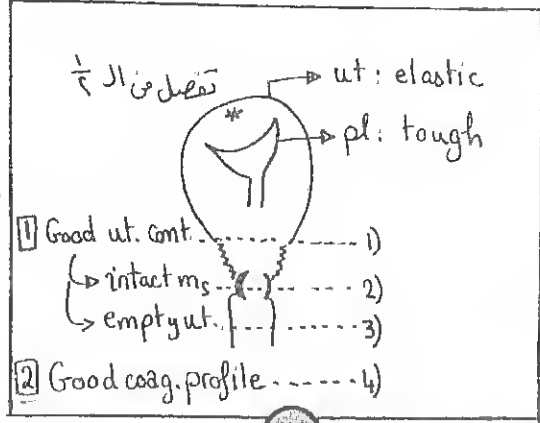 تفصل من ال ١/٢
ut: elastic
*
pl: tough
1 Good ut. cont. 1)
intact ms 2)
empty ut. 3)
2 Good coag. profile 4)